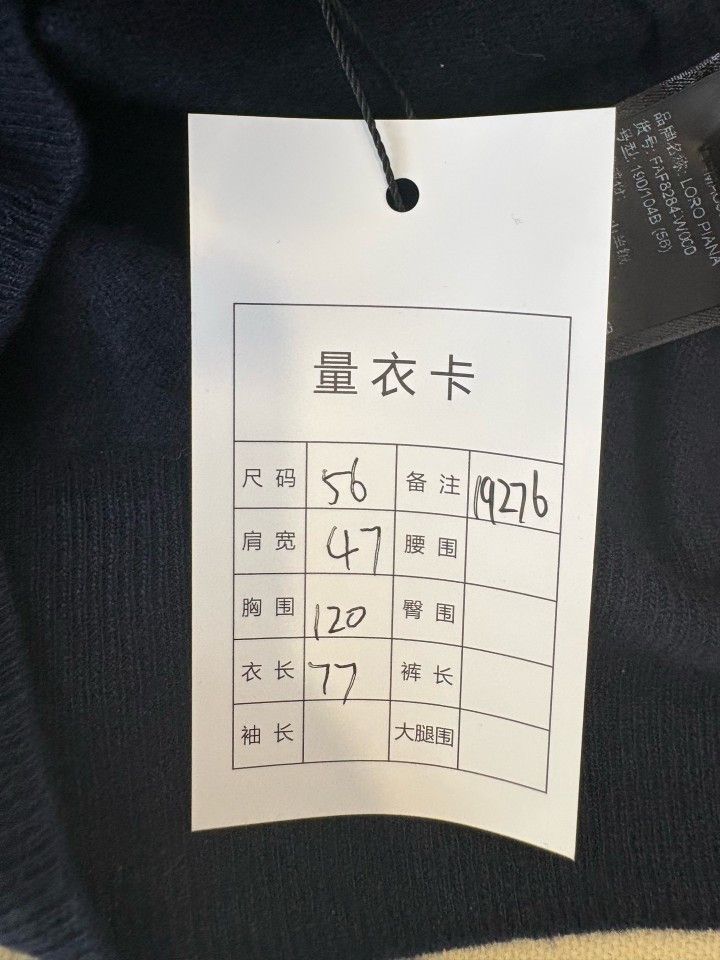 量衣卡
尺码 56 备注 19276
肩宽 47 腰围
胸围 120 臀围
衣长 77 裤长
袖长 大腿围
品牌名称: LORO PIANA
货号: FAF8284-W000
号型: 190/104B (56)